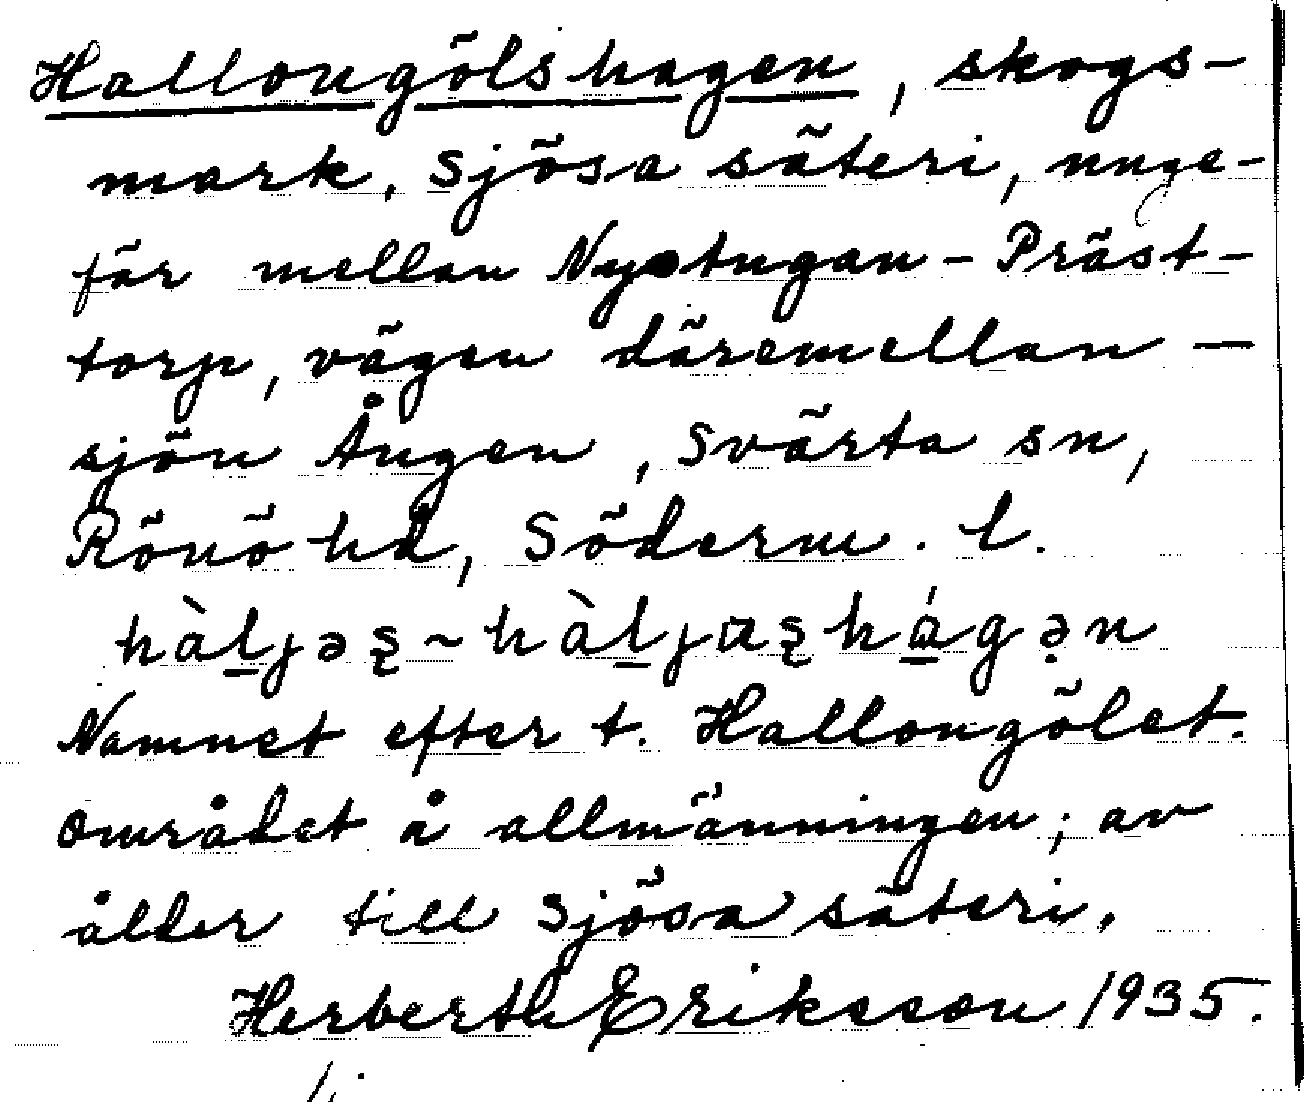 Hallongölshagen, skogs-
mark, Sjösa säteri, unge-
fär mellan Nystugan - Präst-
torp, vägen däremellan —
sjön Ången, Svärta sn,
Rönö hd, Söderm. l.
hàl̠jəs̨ ~ hàl̠jɑs̨ há̠gə̣n
Namnet efter t. Hallongölet.
Området å allmänningen; av
ålder till Sjösa säteri.
Herberth Eriksson 1935.